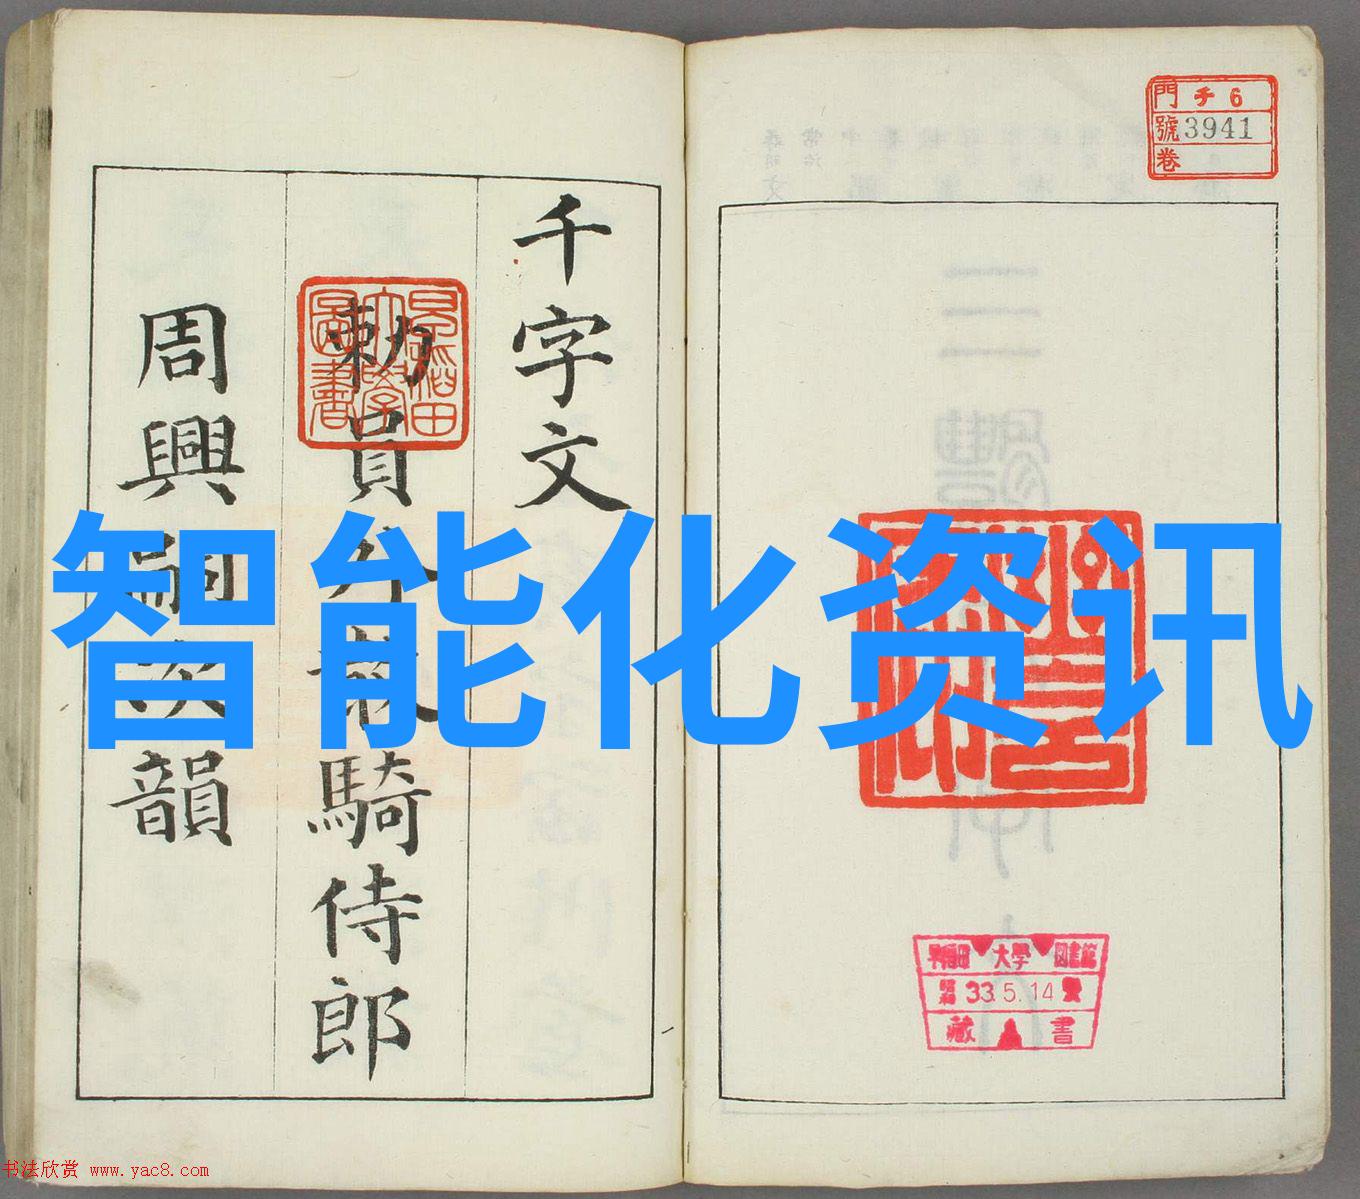 門 チ 6
號 3941
卷
千字文
勅員外散騎侍郎
周興嗣次韻
智能化资讯
早稲田大學圖書
早稲田 大學 図書館
昭和 33.5.14
藏 書
书法欣赏 www.yac8.com